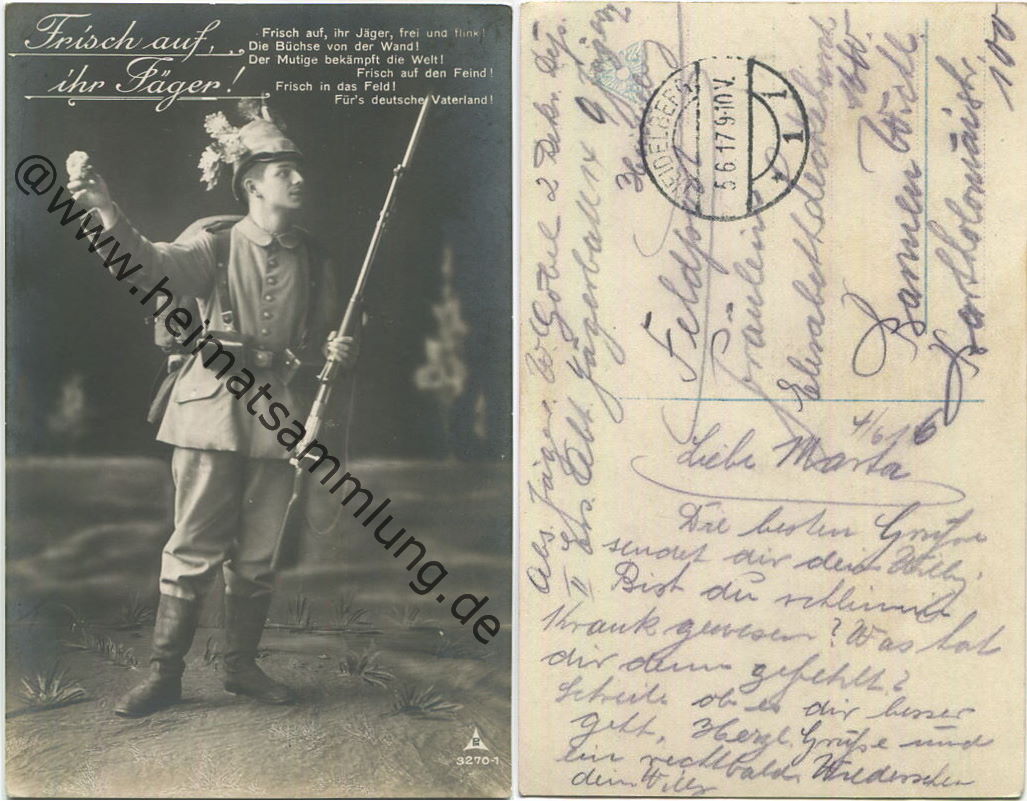 Frisch auf,
ihr Jäger!
Frisch auf, ihr Jäger, frei und flink!
Die Büchse von der Wand!
Der Mutige bekämpft die Welt!
Frisch auf den Feind!
Frisch in das Feld!
Für's deutsche Vaterland!
@www.heimatsammlung.de
3270-1
HEIDELBERG
5.6.17 9-10V.
1
Abs. Jäger
II Ers. Abt. Jägerbatl. 9
Feldpost
Fräulein
Barmen
Bartholomäistr.
100
4/6 16
Liebe Marta
Die besten Grüße
sendet dir dein Willy.
Bist du schlimm
Krank gewesen? Was hat
dir denn gefehlt?
Schreibe ob es dir besser
geht, Herzl. Grüße und
ein recht bald. Wiedersehen
dein Willy